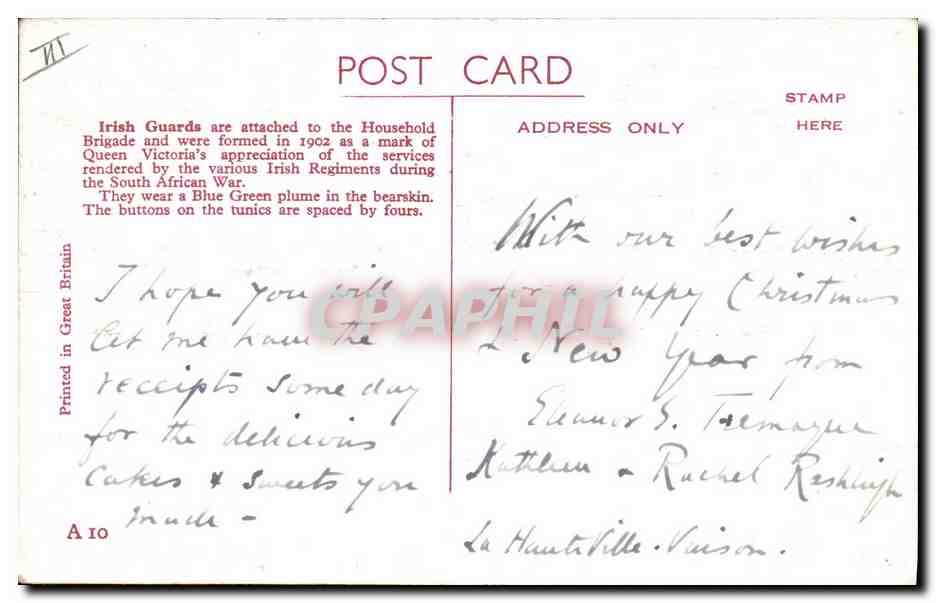 VII
POST CARD
STAMP
HERE
ADDRESS ONLY
Irish Guards are attached to the Household
Brigade and were formed in 1902 as a mark of
Queen Victoria's appreciation of the services
rendered by the various Irish Regiments during
the South African War.
They wear a Blue Green plume in the bearskin.
The buttons on the tunics are spaced by fours.
Printed in Great Britain
I hope you will
let me have the
receipts some day
for the delicious
cakes & sweets you
made -
A 10
With our best wishes
for a happy Christmas
& New Year from
Eleanor G. Tremayne
Kathleen & Rachel Rashleigh
La Haute Ville. Vaison.
CPAPHIL